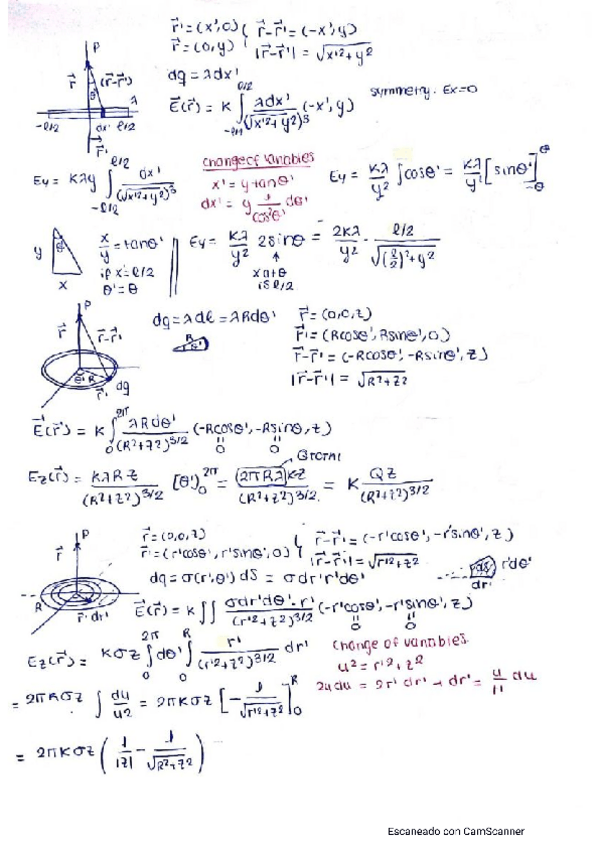 P
r⃗'=(x',0) ( r⃗-r⃗'=(-x',y)
r⃗=(0,y) ( |r⃗-r⃗'|=√x'²+y²
dq=λdx'
r⃗ (r⃗-r⃗') θ' λ
E⃗(r⃗)=K ∫_{-ℓ/2}^{ℓ/2} λdx'/(√x'²+y²)³ (-x',y) symmetry. Ex=0
-ℓ/2 dx' ℓ/2
r⃗'
Ey=Kλy ∫_{-ℓ/2}^{ℓ/2} dx'/(√x'²+y²)³
Change of Variables
x'=ytanθ'
dx'=y 1/cos²θ' dθ'
Ey=Kλ/y² ∫cosθ'=Kλ/y² [sinθ']_{-θ}^{θ}
y θ' x
x/y=tanθ'
if x'=ℓ/2
θ'=θ
Ey=Kλ/y² 2sinθ=2Kλ/y² · ℓ/2/√(ℓ/2)²+y²
↑
is ℓ/2
P
r⃗ r⃗-r⃗' θ' R r⃗' dq
dq=λdℓ=λRdθ'
R θ'
r⃗=(0,0,z)
r⃗'=(Rcosθ',Rsinθ',0)
r⃗-r⃗'=(-Rcosθ',-Rsinθ',z)
|r⃗-r⃗'|=√R²+z²
E⃗(r⃗)=K ∫_0^{2π} λRdθ'/(R²+z²)^{3/2} (-Rcosθ',-Rsinθ,z)
0 0
Qtotal
Ez(r⃗)=kλRz/(R²+z²)^{3/2} [θ']_0^{2π}=(2πRλ)kz/(R²+z²)^{3/2}=K Qz/(R²+z²)^{3/2}
P
r⃗ R r' dr'
r⃗=(0,0,z)
r⃗'=(r'cosθ',r'sinθ',0)
r⃗-r⃗'=(-r'cosθ',-r'sinθ',z)
|r⃗-r⃗'|=√r'²+z²
dq=σ(r',θ')dS=σdr'r'dθ'
dS r'dθ'
dr'
E⃗(r⃗)=K ∫∫ σdr'dθ'.r'/(r'²+z²)^{3/2} (-r'cosθ',-r'sinθ',z)
0 0
Ez(r⃗)=Kσz ∫_0^{2π} dθ' ∫_0^R r'/(r'²+z²)^{3/2} dr'
Change of variables
u²=r'²+z²
2udu=2r'dr' → dr'=u/r' du
=2πKσz ∫ du/u²=2πKσz [-1/√r'²+z²]_0^R
=2πKσz (1/|z| - 1/√R²+z²)
Escaneado con CamScanner